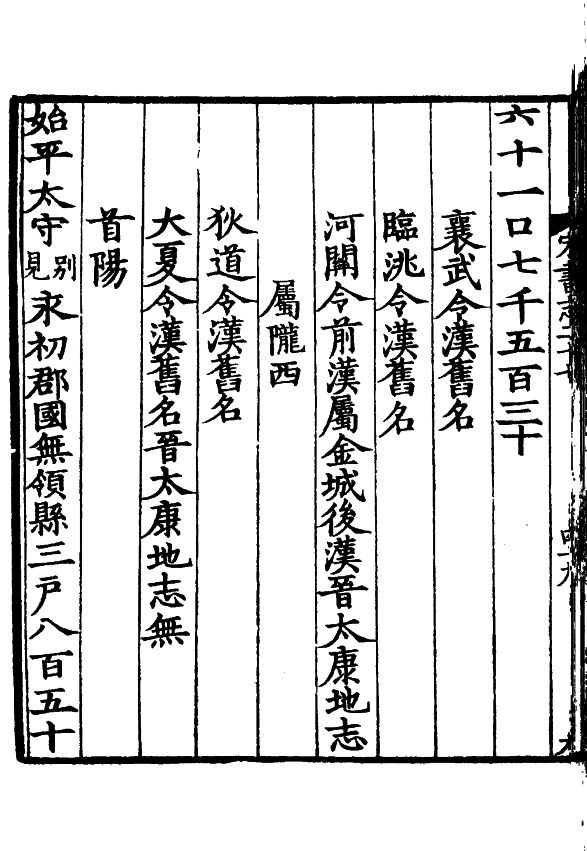 六十一口七千五百三十
襄武令漢舊名
臨洮令漢舊名
河關令前漢屬金城後漢晉太康地志
屬隴西
狄道令漢舊名
大夏令漢舊名晉太康地志無
首陽
始平太守別見永初郡國無領縣三戶八百五十